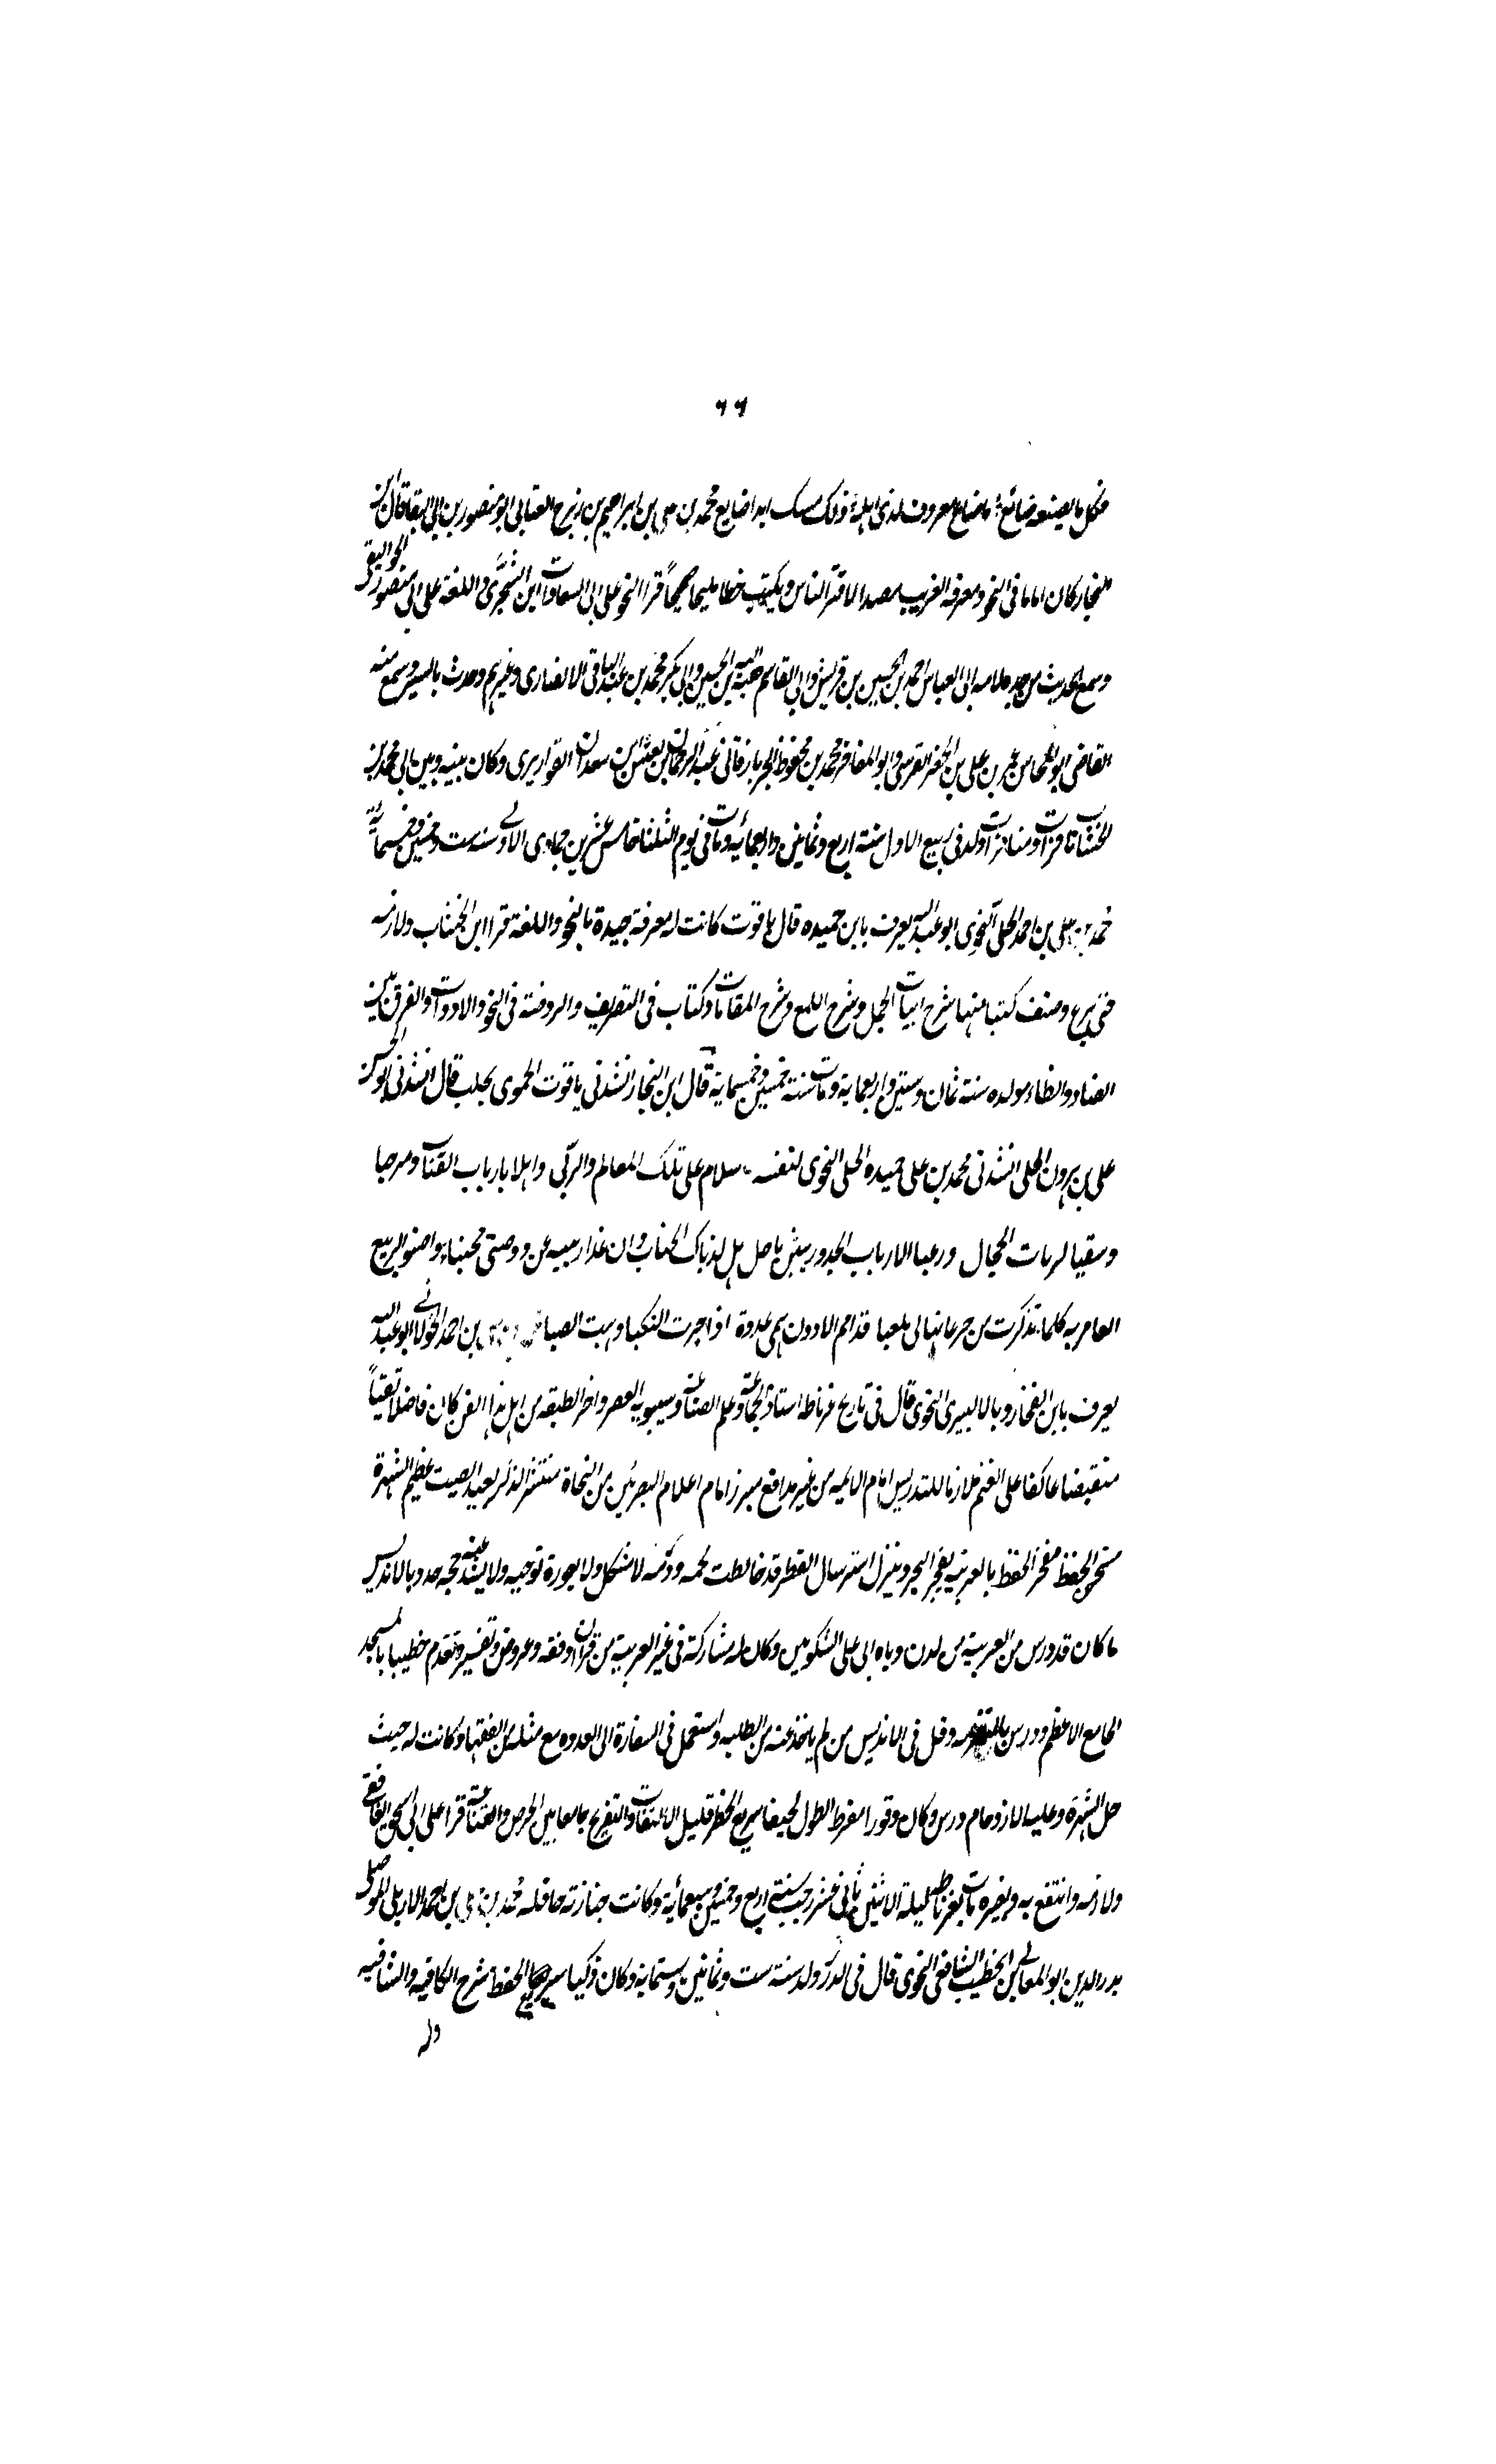 ٦٦
فكل ما يصنعه ضائع ما ضاع معروف لذى اهله ذلك مسك ابدا ضايع محمد بن على بن ابراهيم بن زبرج العتابى ابو منصور بن ابى البقا قال ابن
النجار كان اماما فى النحو ومعرفة الغريب مصدر الاقرا الناس ويكتب خطا مليحا صحيحاً قرا النحو على ابى السعادات ابن الشجرى واللغة على ابى منصور الجواليقى
وسمع الحديث من جد علامه ابى العباس احمد بن الحسين بن قريش وابى القاسم هبة الله بن الحسين وابى بكر محمد بن عبد الباقى الانصارى وغيرهم وحدث باليسير وسمع منه
القاضى ابو المحاسن عمر بن على بن الخضر القرشى وابو المفاخر محمد بن محفوظ الجرباذقانى عبد الرحمن بن يعيش بن سعدان القواريرى وكان بينه وبين ابى محمد بن
الخشاب تاقرات ومنافرات ولد فى ربيع الاول سنة اربع وثمانين واربعمائه ومات فى يوم الثلثا خامس عشرين جمادى الاولى سنه ست وخمسين وخمسمائة
محمد بن على بن احمد الحلى النحوى ابو عبد الله يعرف بابن حميده قال ياقوت كانت له معرفة جيدة بالنحو واللغة قرا ابن الخشاب ولازمه
حتى برع وصنف كتبا منها شرح ابيات الجمل وشرح اللمع وشرح المقامات وكتاب فى التصريف والروضة فى النحو والادوات والفرق بين
الضاد والظاء مولده سنة ثمان وستين واربعماية ومات سنة خمسين وخمسماية قال ابن النجار انشدنى ياقوت الحموى بحلب قال انشدنى ابو الحسن
على بن هرون الحلى انشدنى محمد بن على حميده الحلى النحوى لنفسه سلام على تلك المعالم والربى واهلا بارباب القناب ومرحبا
وسقيا لربات الحجال ورعيا لارباب الخدور بيثرب
العامريه كلما تذكرت من جرعائها لى ملعبا اذا جرت النكبا وهبت الصبا محمد بن على بن احمد الخولانى ابو عبد الله
يعرف بابن الفخار وبالالبيرى النحوى قال فى تاريخ غرناطه استاذ الجماعة وعلم الصناعة وسيبويه العصر واخر الطبقه من اهل هذا الفن كان فاضلا تقياً
منقبضا عاكفا على العلم ملازما للتدريس امام الايمه من غير مدافع مبرزا امام اعلام البصريين من النحاة منتشر الذكر بعيد الصيت عظيم الشهرة
متبحر الحفظ يتفجر بالعربية تفجر البحر وينزل استرسال القطر قد خالطت لحمه ودمه لا يشكل ولا يعوزه توجيه ولا يشذ عنه حجه جدد بالاندلس
ما كان قد درس من العربيه من لدن وفاه ابى على الشلوبين وكان له مشاركة فى غير العربية من قران وفقه وعروض وتفسير وتقدم خطيبا بالمسجد
الجامع الاعظم ودرس وقل فى الاندلس من لم ياخذ عنه من الطلبه واستعمل فى السفارة الى العدوه مع مثله من الفقها وكانت له حيث
حل الشهرة وعليه الازدحام درس وكان وقورا مفرط الطول نحيفا سريع الخطو قليل الالتفات والتعريج جامعا بين الحرص والقناعة قرا على ابى اسحق الغافقى
ولازمه وانتفع به وبغيره مات بغرناطه ليلة الاثنين ثانى عشر رجب سنة اربع وخمسين وسبعمائة وكانت جنازته حافله محمد بن على بن احمد الاربلى الموصلى
بدر الدين ابو المعالى بن الخطيب الشافعى النحوى قال فى الدرر ولد سنة ست وثمانين وستماية وكان ذكيا سريع الحفظ شرح الكافيه والشافيه
وله